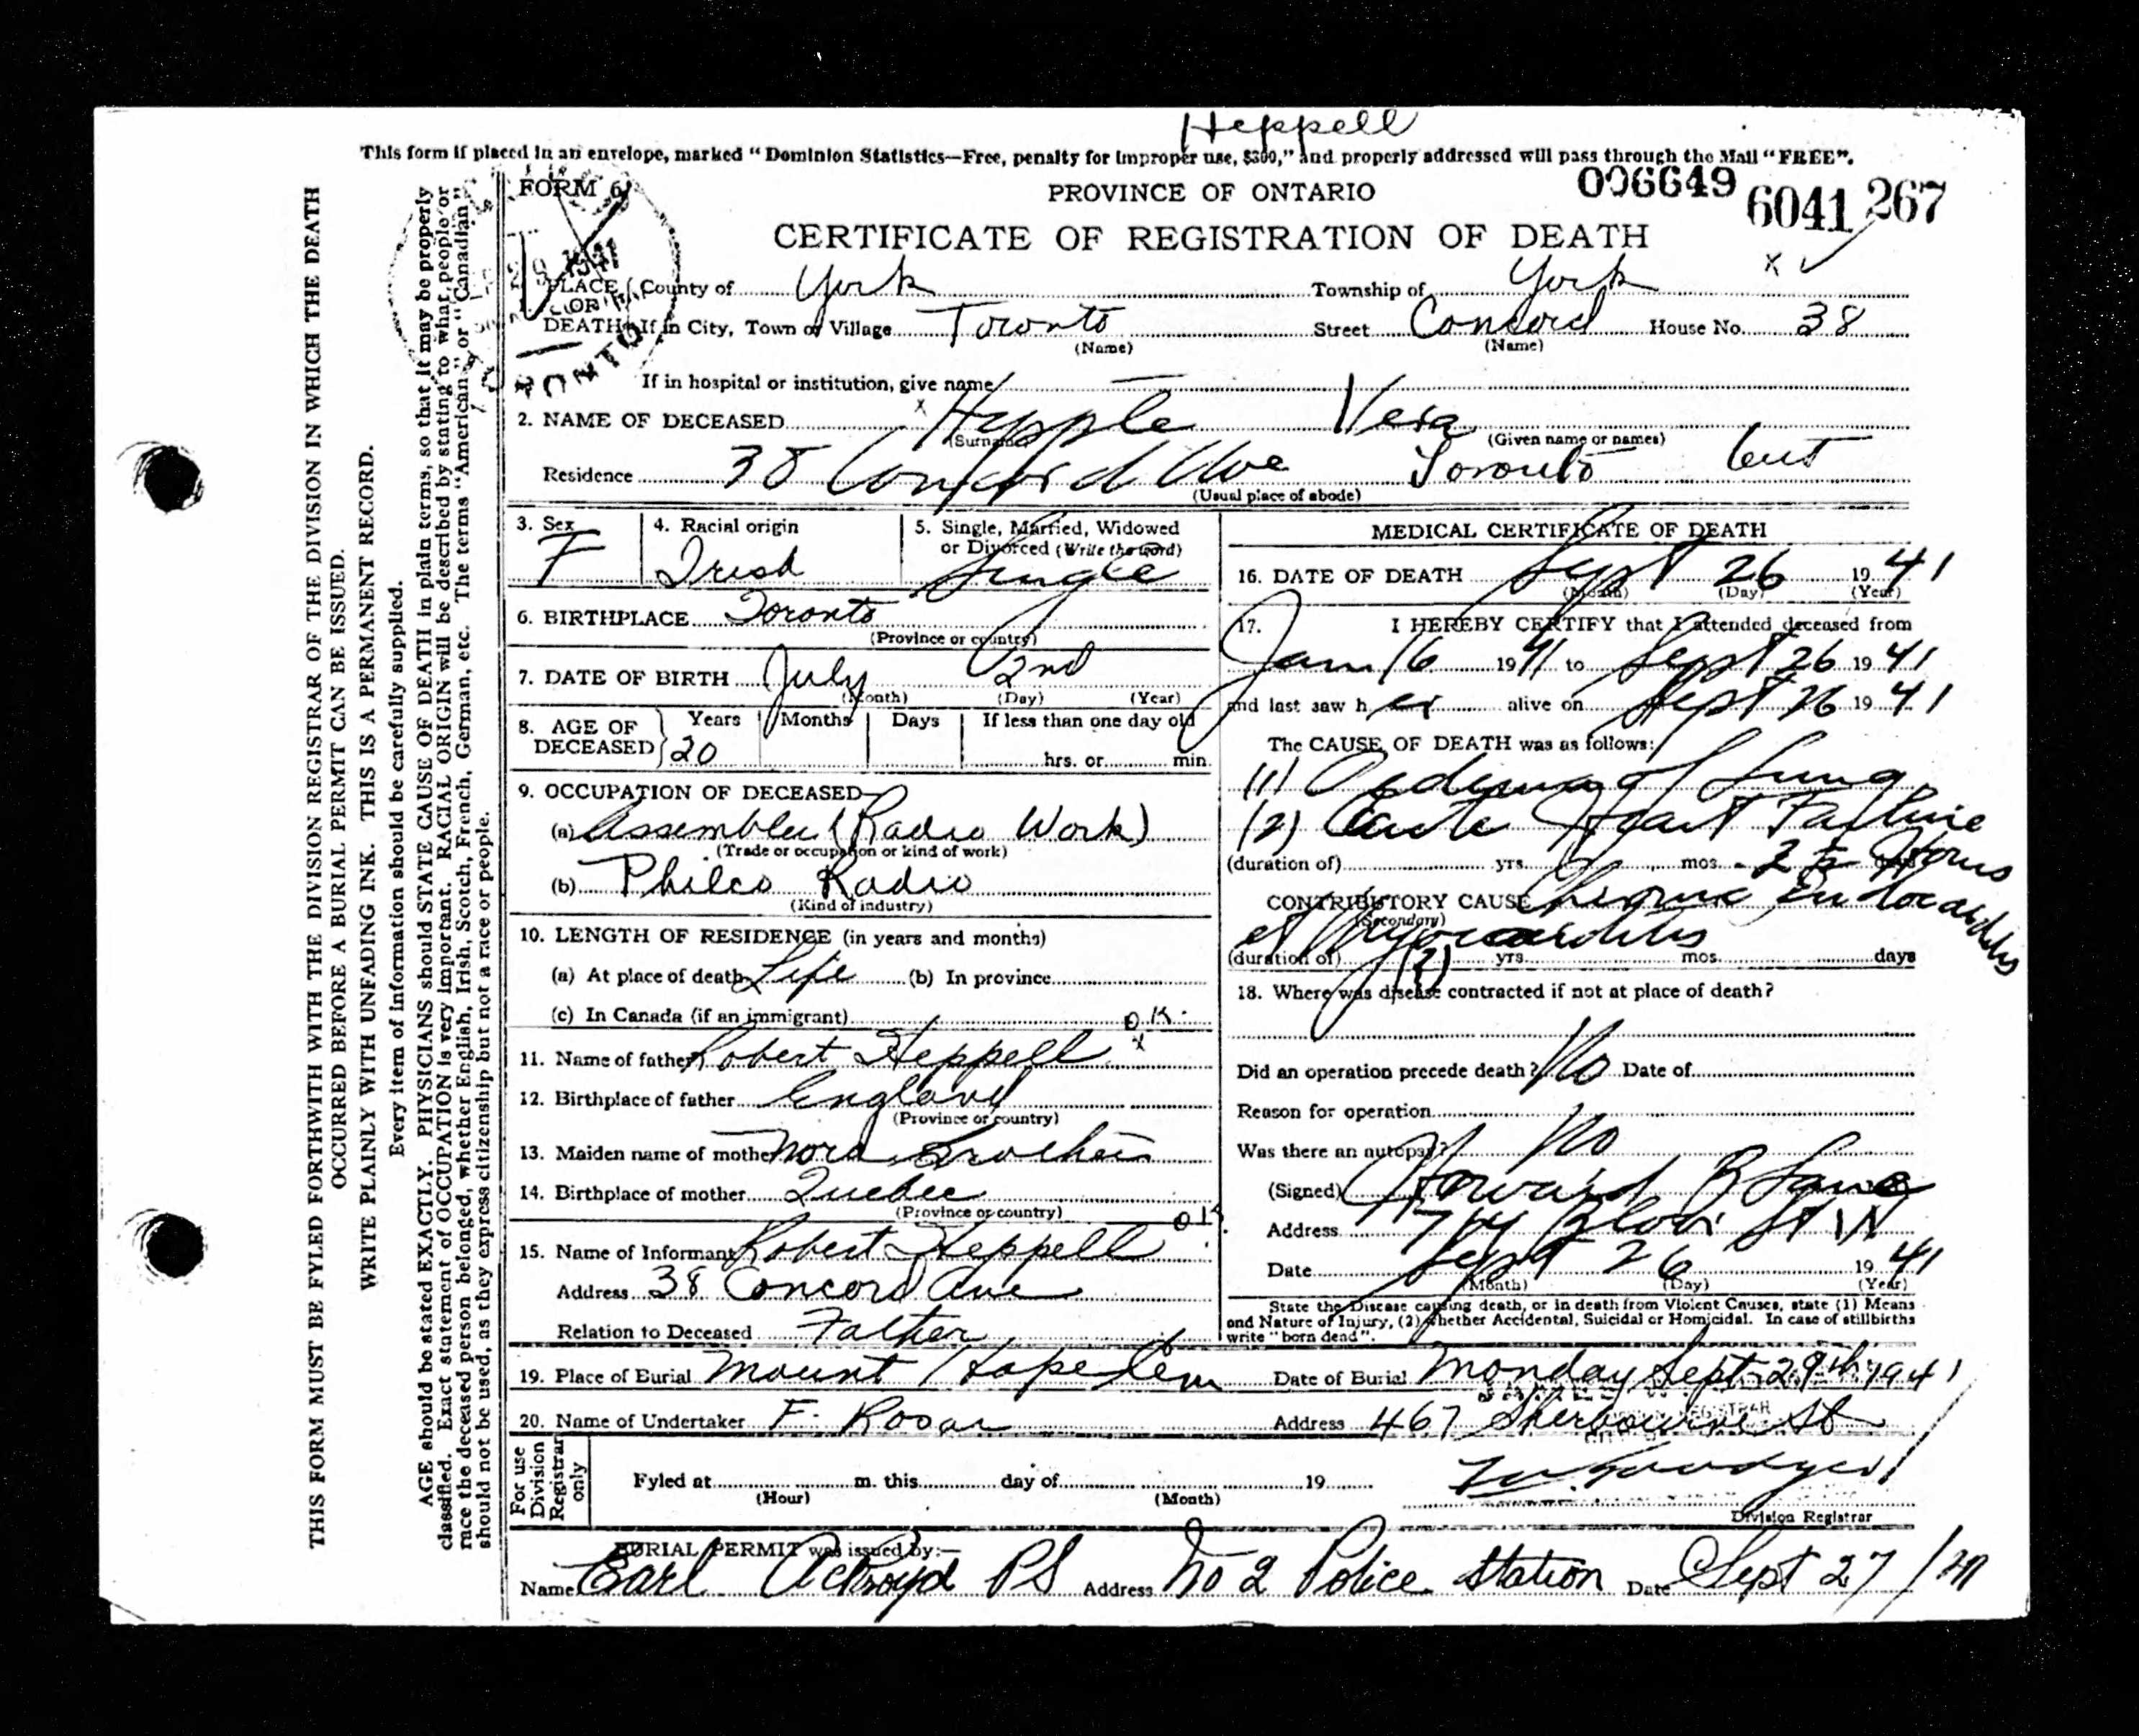 Heppell
This form if placed in an envelope, marked "Dominion Statistics—Free, penalty for improper use, $300," and properly addressed will pass through the Mail "FREE".
FORM 6
PROVINCE OF ONTARIO
006649 6041 267
CERTIFICATE OF REGISTRATION OF DEATH
1941
PLACE OF DEATH
County of York Township of York
If in City, Town or Village Toronto Street Concord House No. 38
(Name) (Name)
TORONTO
If in hospital or institution, give name —
2. NAME OF DECEASED Hepple Vera
(Surname) (Given name or names)
Residence 38 Concord Ave Toronto Ont
(Usual place of abode)
3. Sex F
4. Racial origin Irish
5. Single, Married, Widowed or Divorced (Write the word) Single
6. BIRTHPLACE Toronto
(Province or country)
7. DATE OF BIRTH July 2nd
(Month) (Day) (Year)
8. AGE OF DECEASED Years Months Days If less than one day old
20 hrs. or min.
9. OCCUPATION OF DECEASED—
(a) Assembler (Radio Work)
(Trade or occupation or kind of work)
(b) Philco Radio
(Kind of industry)
10. LENGTH OF RESIDENCE (in years and months)
(a) At place of death Life (b) In province
(c) In Canada (if an immigrant) O.K.
11. Name of father Robert Heppell x
12. Birthplace of father England
(Province or country)
13. Maiden name of mother Nora
14. Birthplace of mother Quebec
(Province or country)
15. Name of Informant Robert Heppell
Address 38 Concord Ave
Relation to Deceased Father
MEDICAL CERTIFICATE OF DEATH
16. DATE OF DEATH Sept 26 1941
(Month) (Day) (Year)
17. I HEREBY CERTIFY that I attended deceased from
Jan 16 1941 to Sept 26 1941
and last saw her alive on Sept 26 1941
The CAUSE OF DEATH was as follows:
(1) Oedema of Lung
(2) Acute Heart Failure
(duration of) yrs. mos. 2½ hours
CONTRIBUTORY CAUSE Chronic Endocarditis
(Secondary)
et Myocarditis
(duration of) (?) yrs. mos. days
18. Where was disease contracted if not at place of death?
Did an operation precede death? No Date of
Reason for operation
Was there an autopsy? No
(Signed) Howard B
Address 774 Bloor St W
Date Sept 26 1941
(Month) (Day) (Year)
State the Disease causing death, or in death from Violent Causes, state (1) Means
and Nature of Injury, (2) Whether Accidental, Suicidal or Homicidal. In case of stillbirths
write "born dead".
19. Place of Burial Mount Hope Cem Date of Burial Monday Sept 29th 1941
20. Name of Undertaker F. Rosar Address 467 Sherbourne St
For use Division Registrar only
Fyled at m. this day of 19
(Hour) (Month)
Division Registrar
BURIAL PERMIT was issued by:—
Name Earl Ackroyd PS Address No 2 Police Station Date Sept 27/41
THIS FORM MUST BE FYLED FORTHWITH WITH THE DIVISION REGISTRAR OF THE DIVISION IN WHICH THE DEATH
OCCURRED BEFORE A BURIAL PERMIT CAN BE ISSUED.
WRITE PLAINLY WITH UNFADING INK. THIS IS A PERMANENT RECORD.
Every item of information should be carefully supplied.
AGE should be stated EXACTLY. PHYSICIANS should STATE CAUSE OF DEATH in plain terms, so that it may be properly
classified. Exact statement of OCCUPATION is very important. RACIAL ORIGIN will be described by stating to what people or
race the deceased person belonged, whether English, Irish, Scotch, French, German, etc. The terms "American" or "Canadian"
should not be used, as they express citizenship but not a race or people.